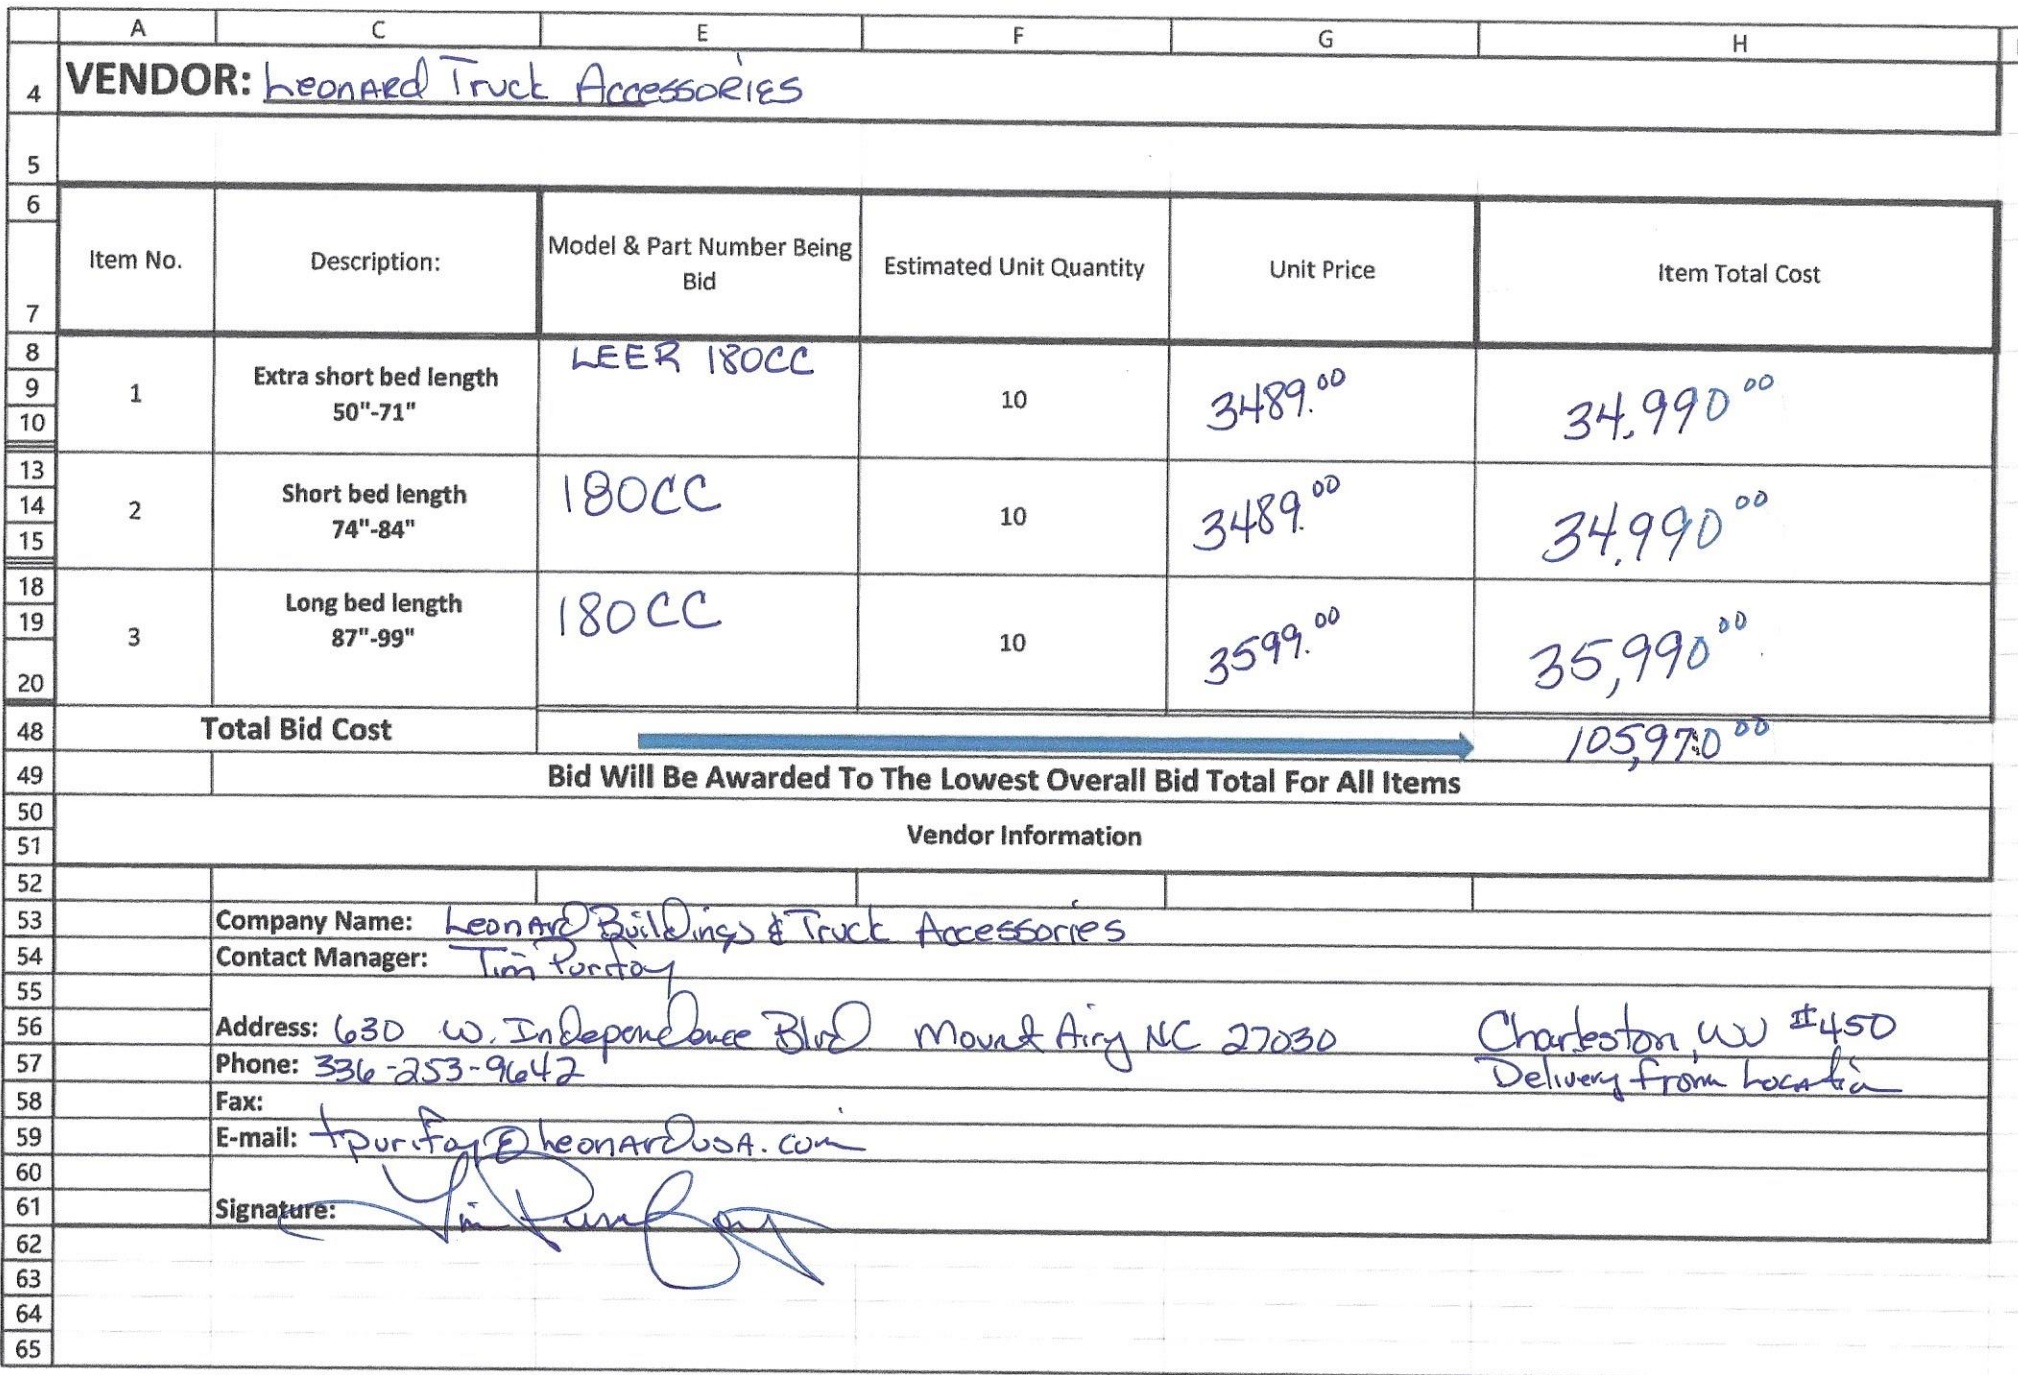 A C E F G H
4 VENDOR: Leonard Truck Accessories
5
6
Item No. Description: Model & Part Number Being Bid Estimated Unit Quantity Unit Price Item Total Cost
7
8 LEER 180CC
9 1 Extra short bed length 10 3489.00 34,990 00
10 50"-71"
13 180CC
14 2 Short bed length 10 3489.00 34,990 00
15 74"-84"
18 180CC
19 3 Long bed length 10 3599.00 35,990 00
87"-99"
20
48 Total Bid Cost 105,970 00
49 Bid Will Be Awarded To The Lowest Overall Bid Total For All Items
50
51 Vendor Information
52
53 Company Name: Leonard Buildings & Truck Accessories
54 Contact Manager: Tim Purifoy
55
56 Address: 630 W. Independence Blvd Mount Airy NC 27030 Charleston, WV #450
57 Phone: 336-253-9642 Delivery from Location
58 Fax:
59 E-mail: tpurifoy@LeonardUSA.com
60
61 Signature: Tim Purifoy
62
63
64
65